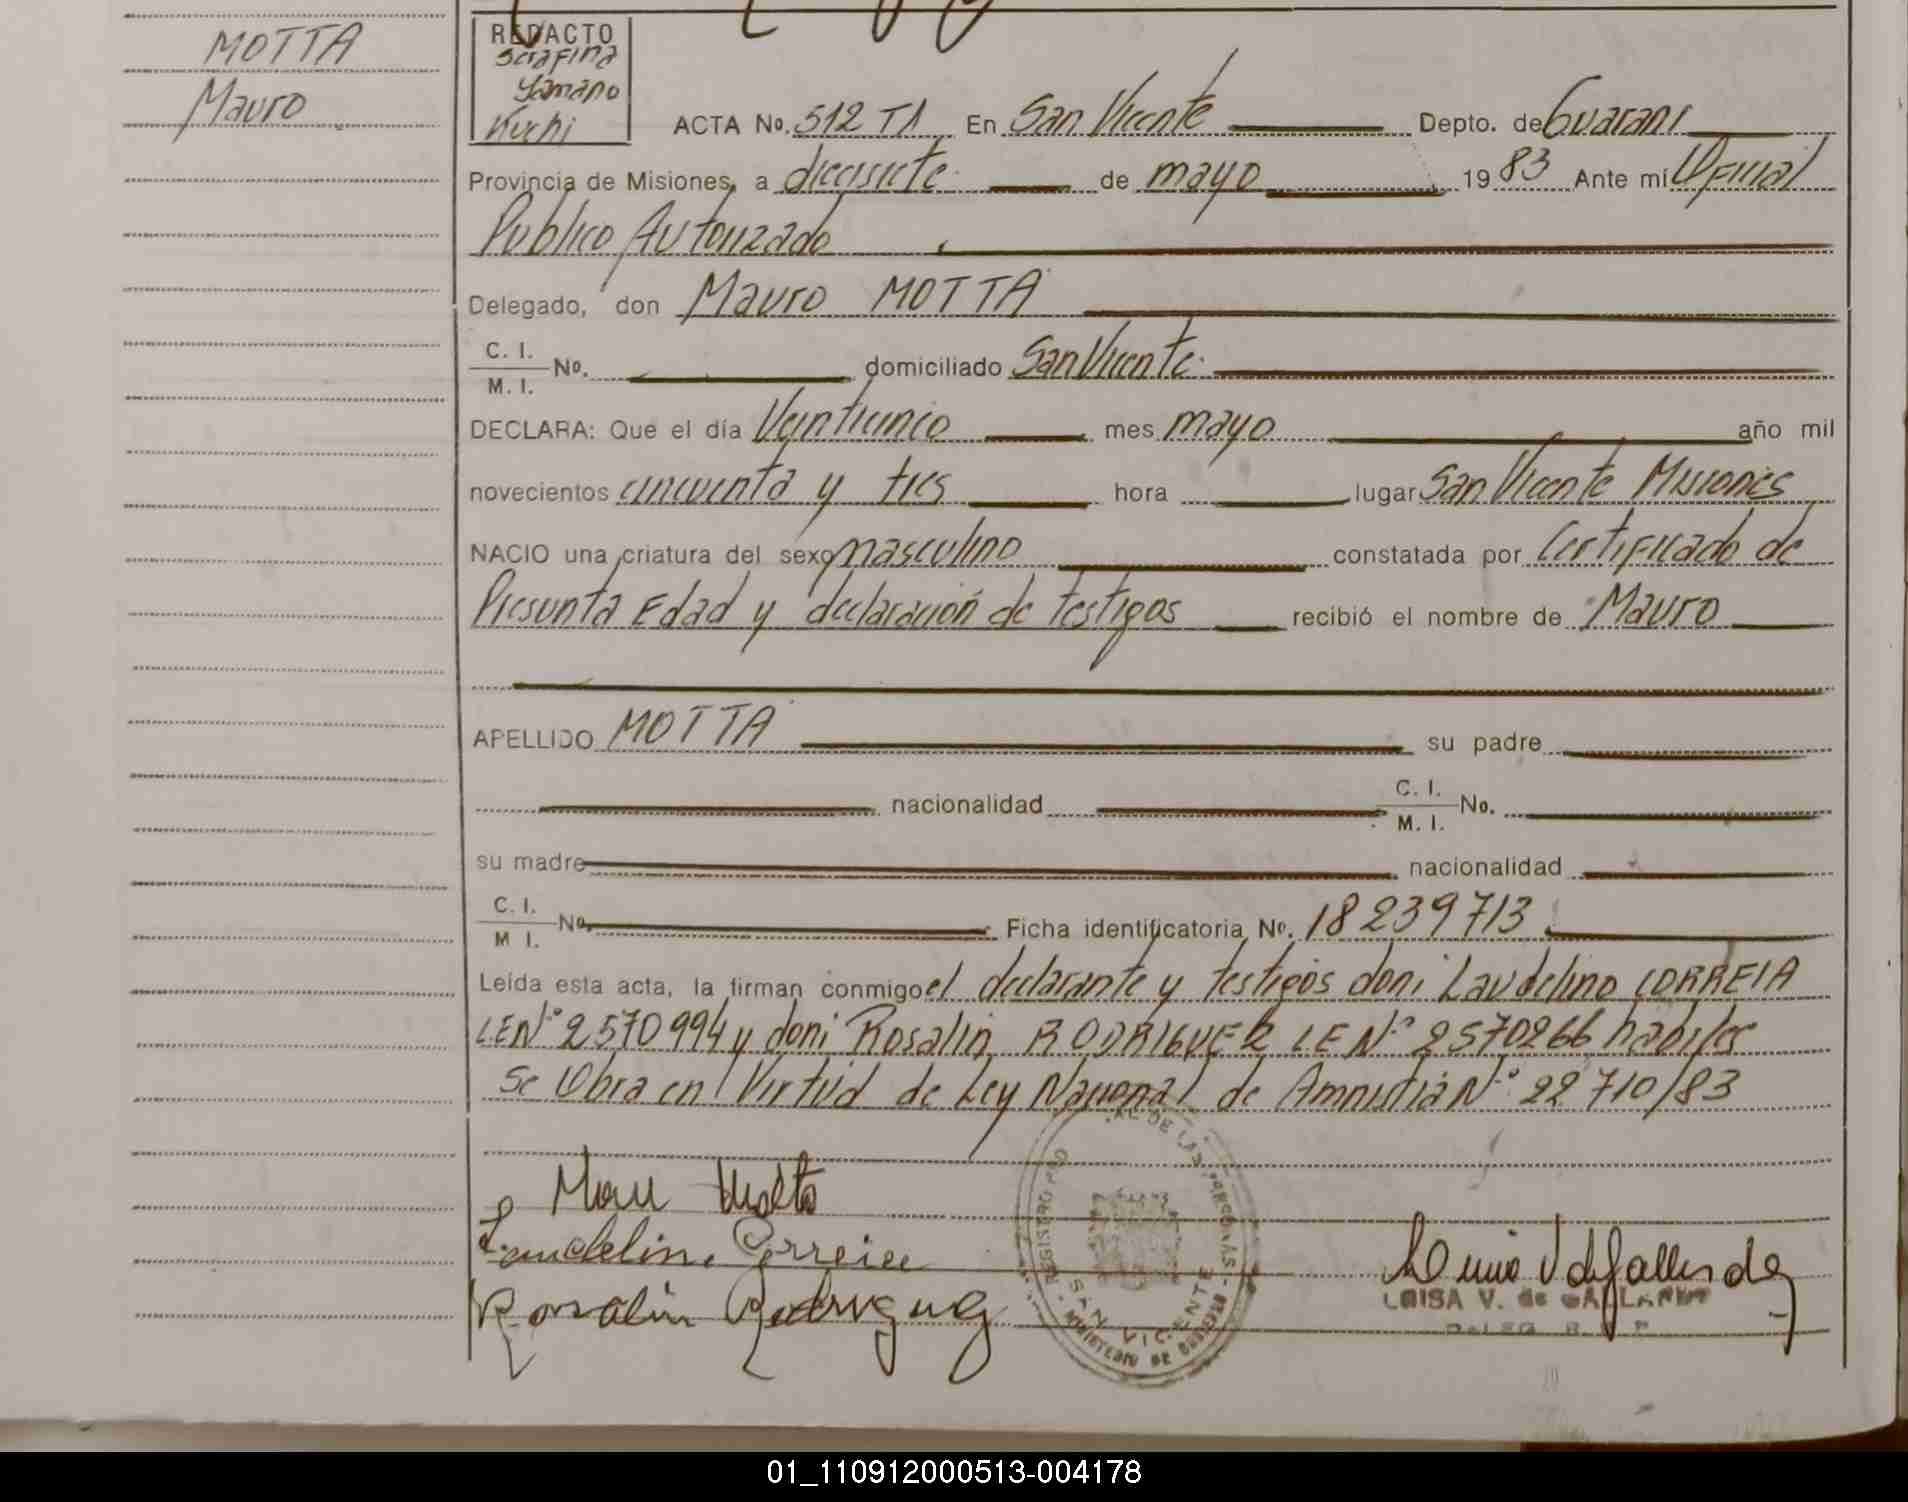 MOTTA
Mauro
REDACTO
Serafina
Yamano
Kuchi
ACTA No. 512 T1 En San Vicente Depto. de Guarani
Provincia de Misiones, a diecisiete de mayo 1983 Ante mi Oficial
Publico Autorizado
Delegado, don Mauro MOTTA
C. I.
M. I. No. domiciliado San Vicente
DECLARA: Que el día Veinticinco mes mayo año mil
novecientos cincuenta y tres hora lugar San Vicente Misiones
NACIO una criatura del sexo masculino constatada por Certificado de
Presunta Edad y declaración de testigos recibió el nombre de Mauro
APELLIDO MOTTA su padre
nacionalidad C. I.
M. I. No.
su madre nacionalidad
C. I.
M I. No. Ficha identificatoria No. 18239713
Leida esta acta, la firman conmigo el declarante y testigos don: Laudelino CORREIA
LE Nº 2570994 y don: Rosalin RODRIGUEZ LE Nº 2570266 habiles
Se Obra en Virtud de Ley Nacional de Amnistia Nº 22710/83
Motta
Laudelino Correia
Rosalin Rodriguez
REGISTRO PCIAL DE LAS PERSONAS - SAN VICENTE - MINISTERIO DE GOBIERNO
LUISA V. de GALLARDO
DELEG. R. P.
01_110912000513-004178